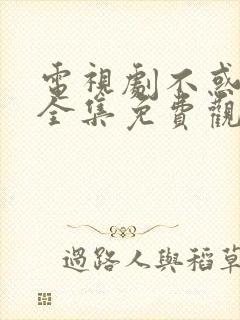 電視劇不惑
全集免費觀
過路人與稻草